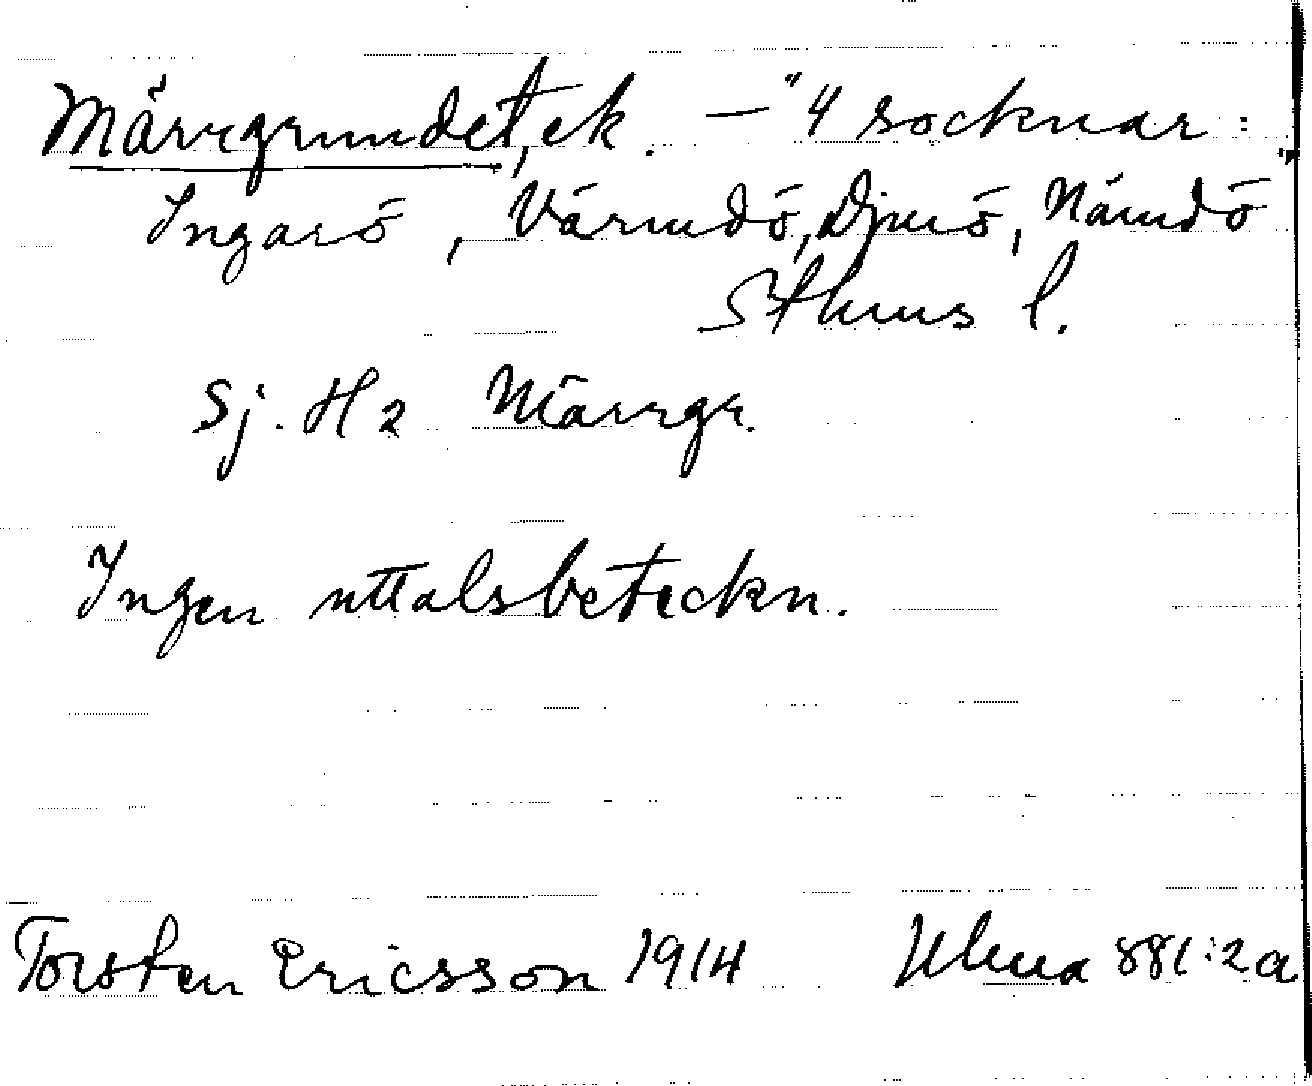 Märrgrundet, ek. – "4 socknar:"
Ingarö, Värmdö, Djurö, Nämdö
Sthms l.
Sj. H 2 Märrgr.
Ingen uttalsbeteckn.
Torsten Ericsson 1914 Ulma 881:2a